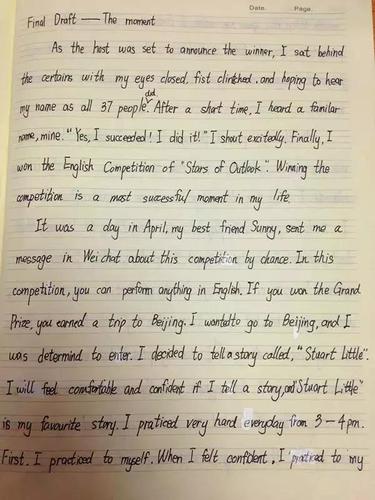 Date. Page.
Final Draft — The moment
As the host was set to announce the winner, I sat behind
the certains with my eyes closed, fist clintched, and hoping to hear
did
my name as all 37 people. After a short time, I heard a familar
name, mine. "Yes, I succeeded! I did it!" I shout excitedly. Finally, I
won the English Competition of "Stars of Outlook". Winning the
competition is a most successful moment in my life.
It was a day in April, my best friend Sunny, sent me a
message in Wei chat about this competition by chance. In this
competition, you can perform anything in English. If you won the Grand
Prize, you earned a trip to Beijing. I wanted to go to Beijing, and I
was determind to enter. I decided to tell a story called, "Stuart Little".
I will feel comfortable and confident if I tell a story, and "Stuart Little"
is my favourite story. I praticed very hard everyday from 3-4pm.
First. I practiced to myself. When I felt confident, I practiced to my